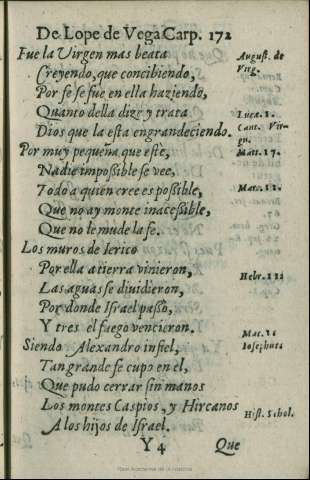 De Lope de Vega Carp. 172
Fue la Virgen mas beata
Creyendo, que concibiendo,
Por fè se fue en ella haziendo,
Quanto della dize y trata
Dios que la esta engrandeciendo.
Por muy pequeña que estè,
Nadie impoßible se vee,
Todo a quien cree es poßible,
Que no ay monte inaceßible,
Que no le mude la fe.
Los muros de Ierico
Por ella a tierra vinieron,
Las aguas se diuidieron,
Por donde Israel passò,
Y tres el fuego vencieron.
Siendo Alexandro infiel,
Tan grande se cupo en el,
Que pudo cerrar sin manos
Los montes Caspios, y Hircanos
A los hijos de Israel.
Y 4 Que
August. de
Virg.
Luca. 1.
Cant. Vir-
gn.
Mat. 17.
Mat. 21.
Hebr. 11
Mat. 21
Iosephus
Hist. Schol.